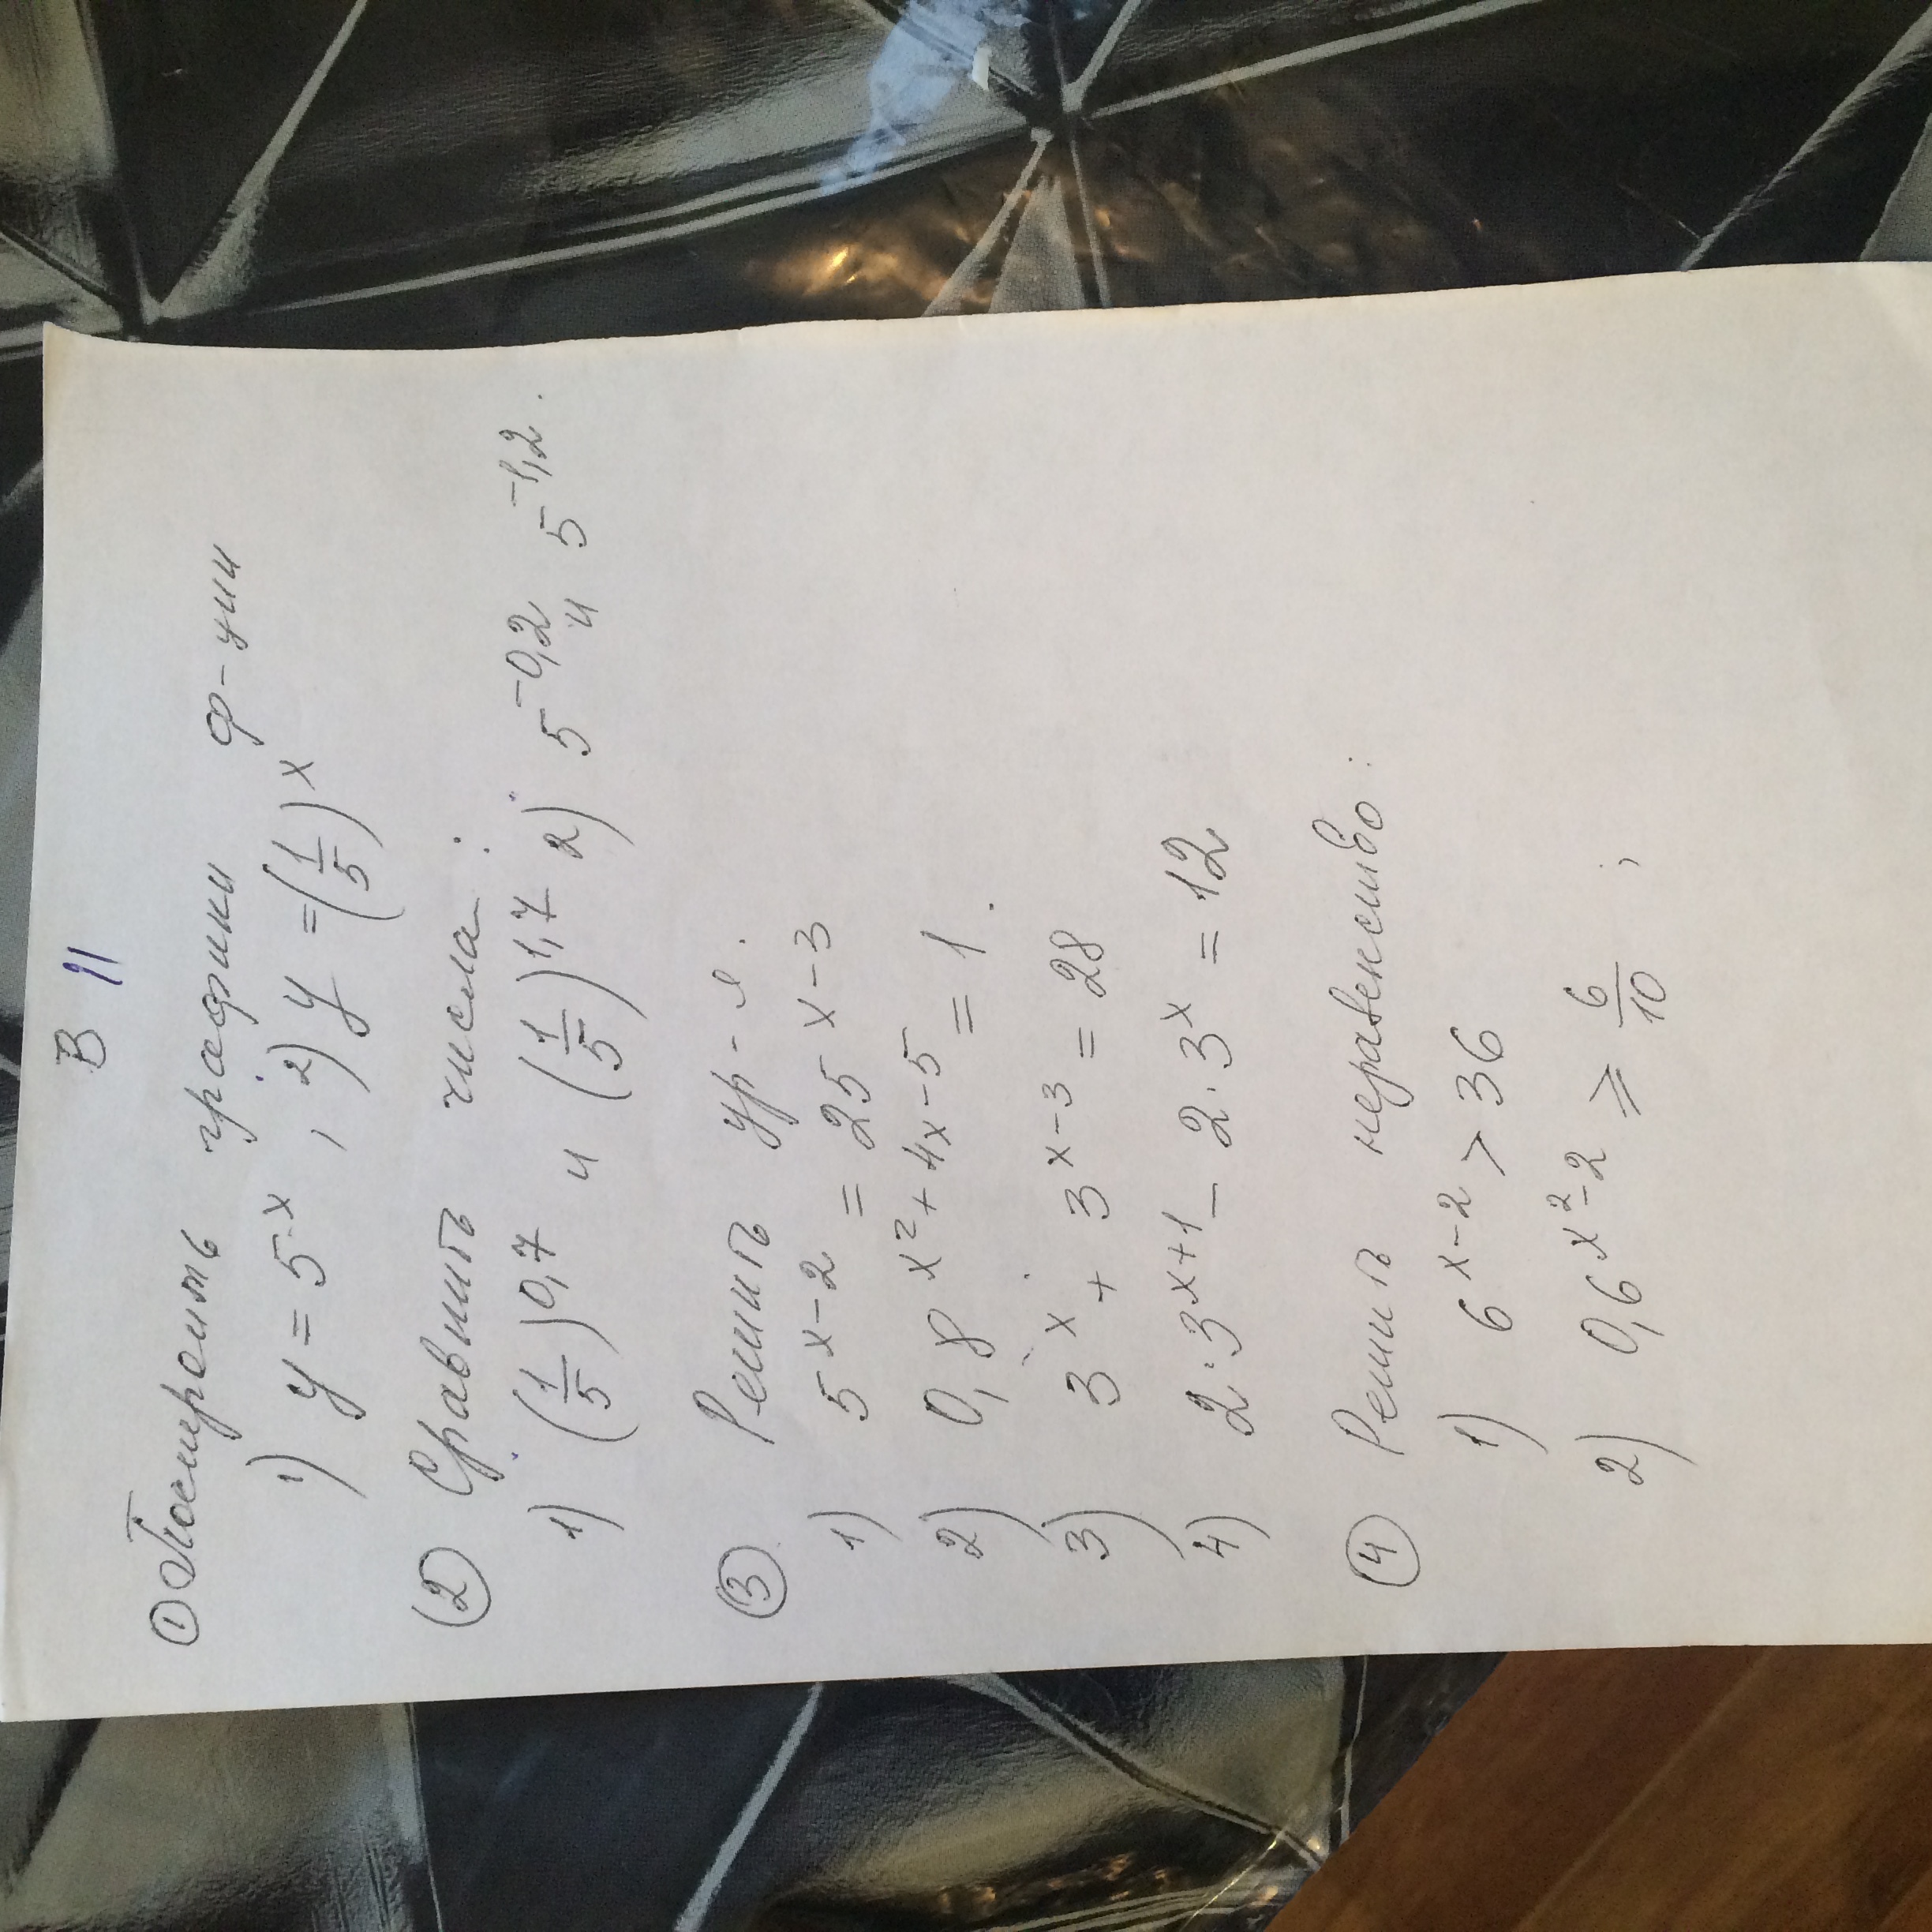 В 11
① Построить графики ф-ции
1) y = 5^x , 2) y = (1/5)^x
② Сравнить числа:
1) (1/5)^0,7 и (1/5)^1,7 2) 5^-0,2 и 5^-1,2.
③ Решить ур-я.
1) 5^x-2 = 25^x-3
2) 0,8^x²+4x-5 = 1.
3) 3^x + 3^x-3 = 28
4) 2·3^x+1 - 2·3^x = 12
④ Решить неравенство:
1) 6^x-2 > 36
2) 0,6^x²-2 ⩾ 6/10 ;